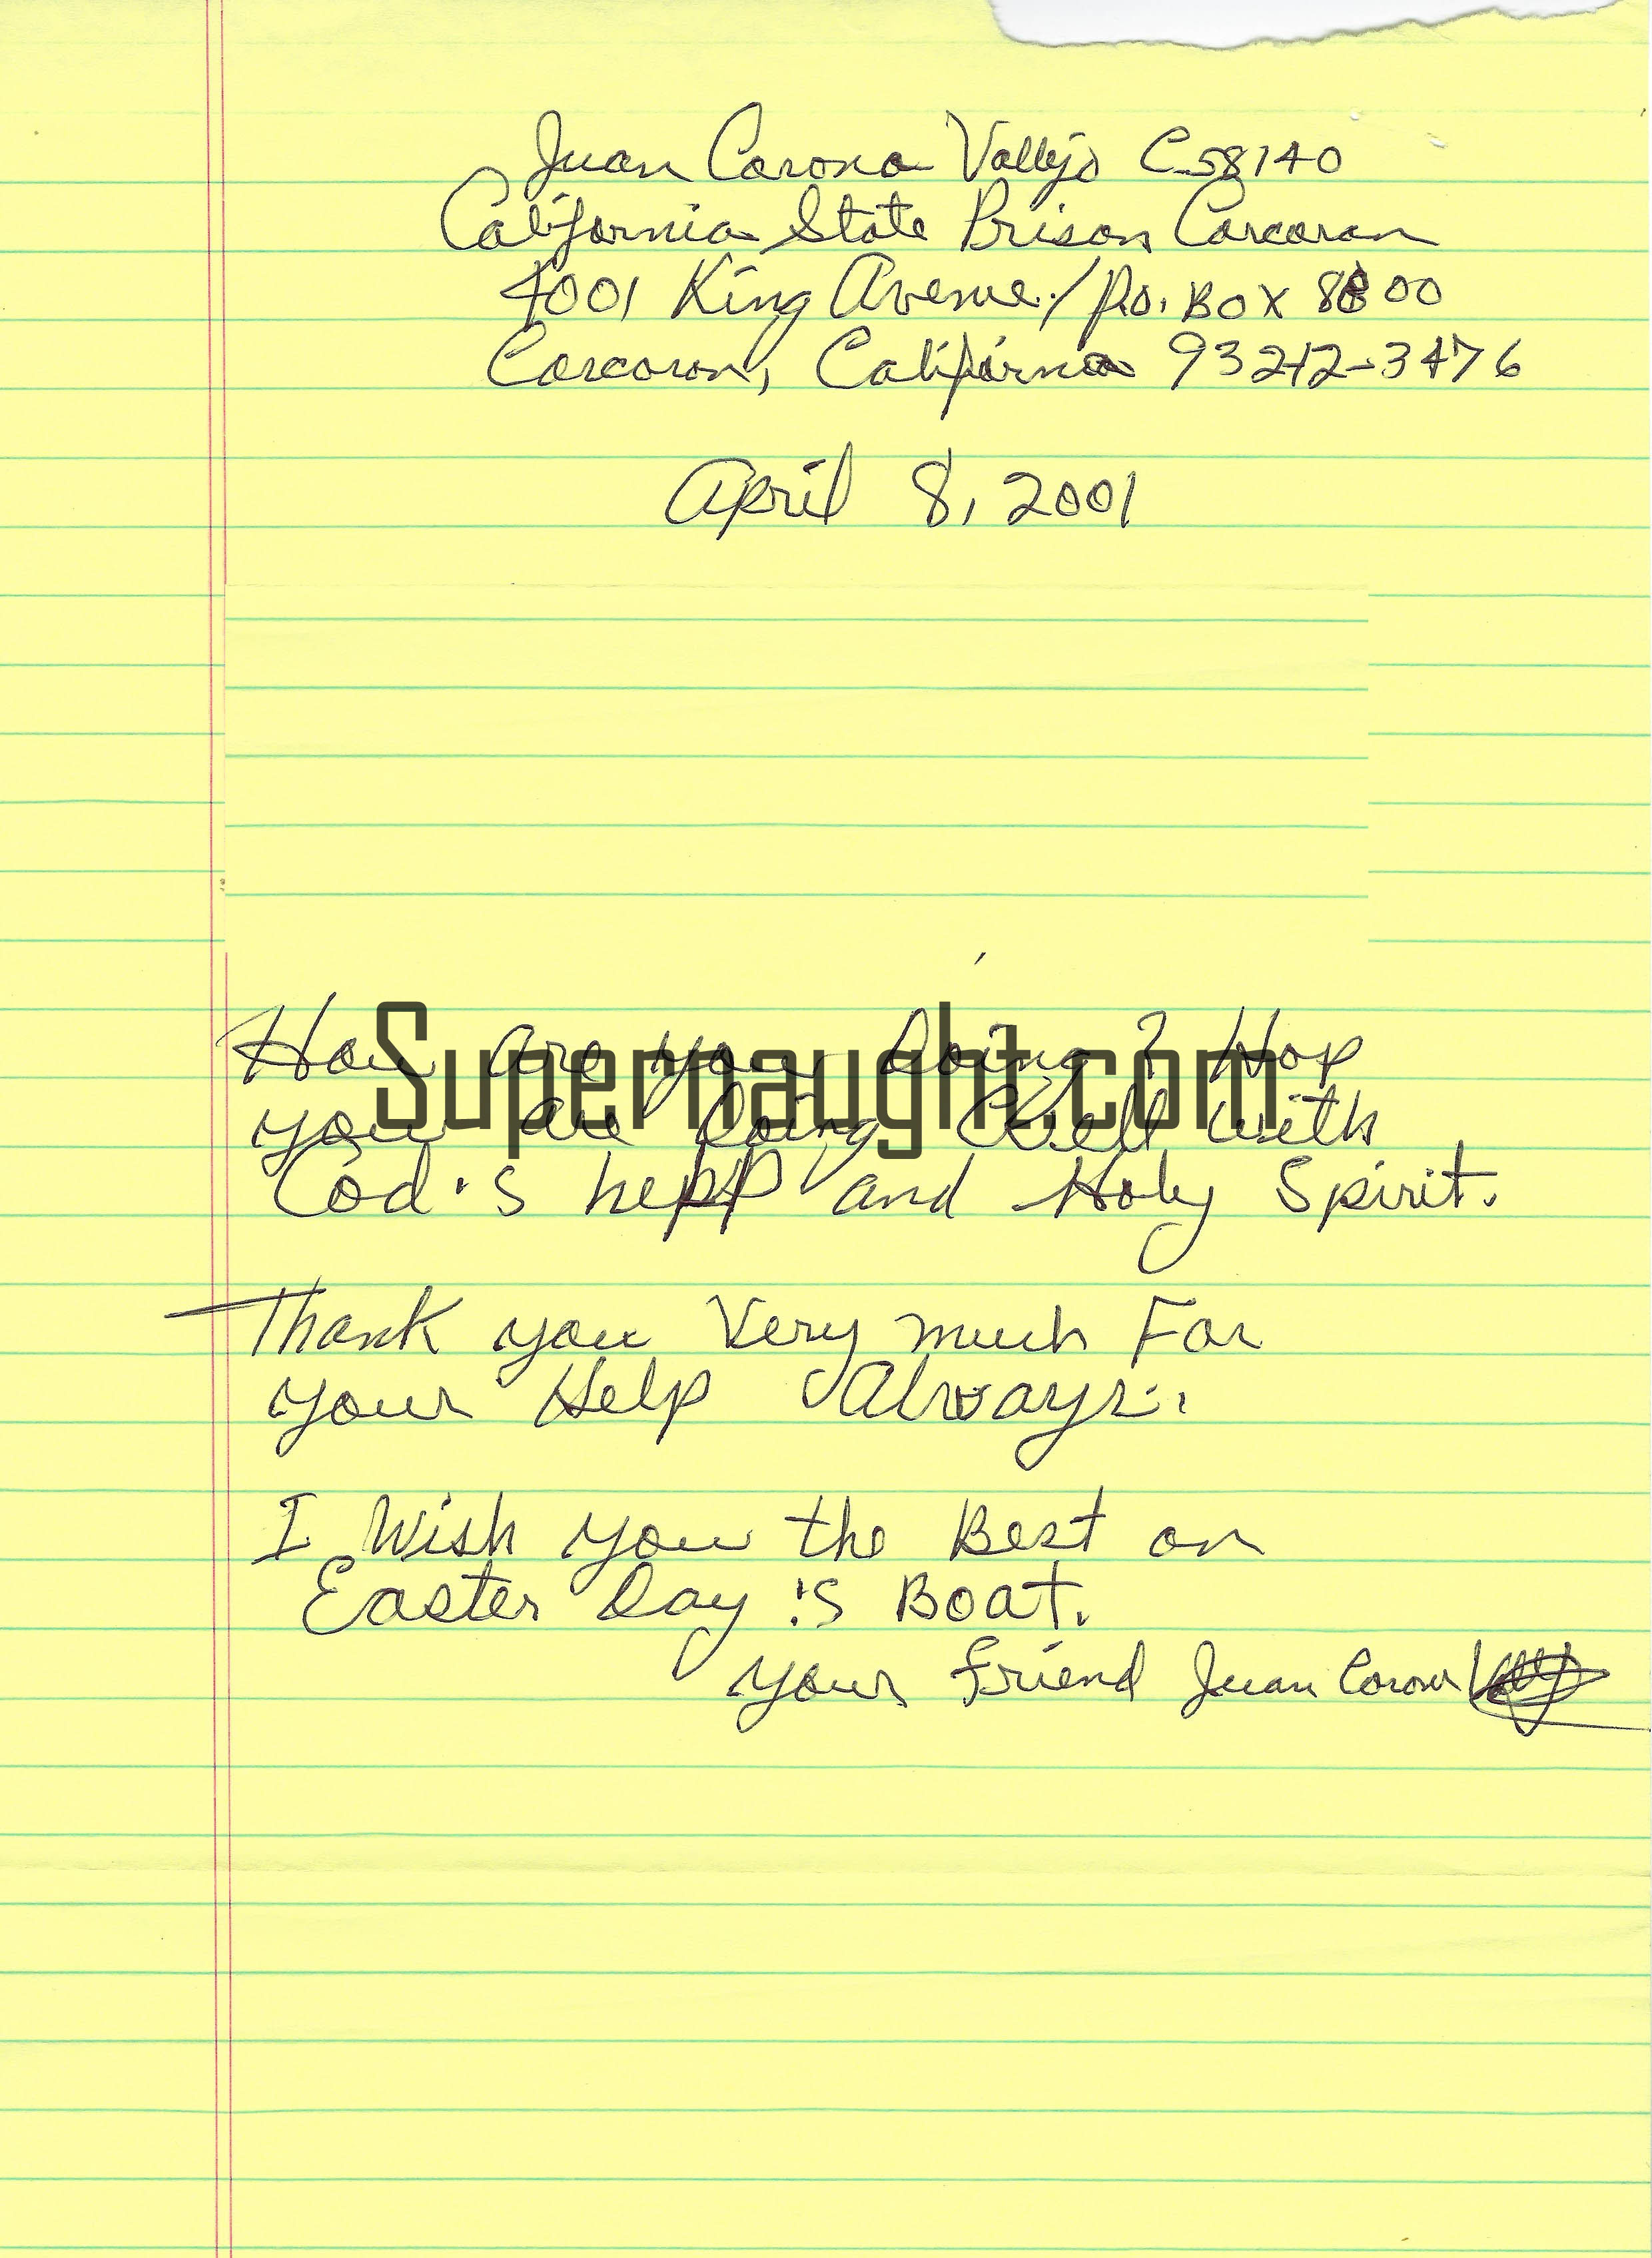 Juan Corona Vallejo C58140
California State Prison Corcoran
4001 King Avenue./P.o. Box 8800
Corcoran, California 93212-3476
April 8, 2001
Supernaught.com
How are you Doing? Hop
you are Doing Well with
God's hepp and Holy Spirit.
Thank you Very much For
your Help Always..
I Wish you the Best on
Easter Day :'s Boat.
your friend Juan Corona